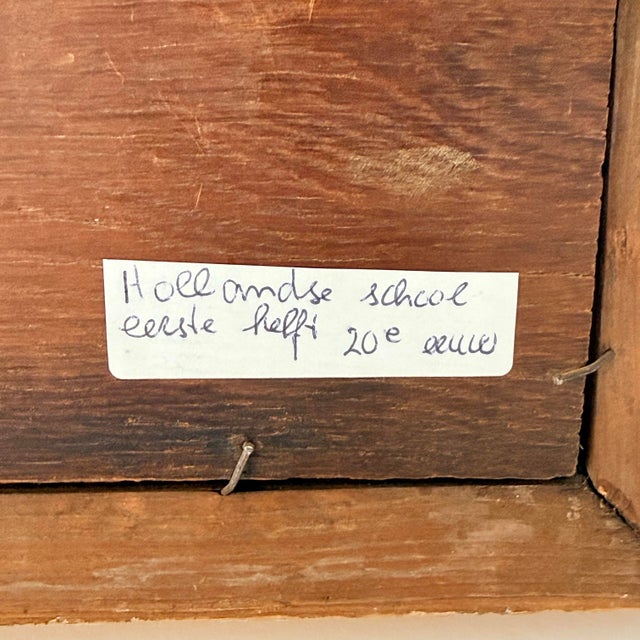 Hollandse school
eerste helft 20e eeuw